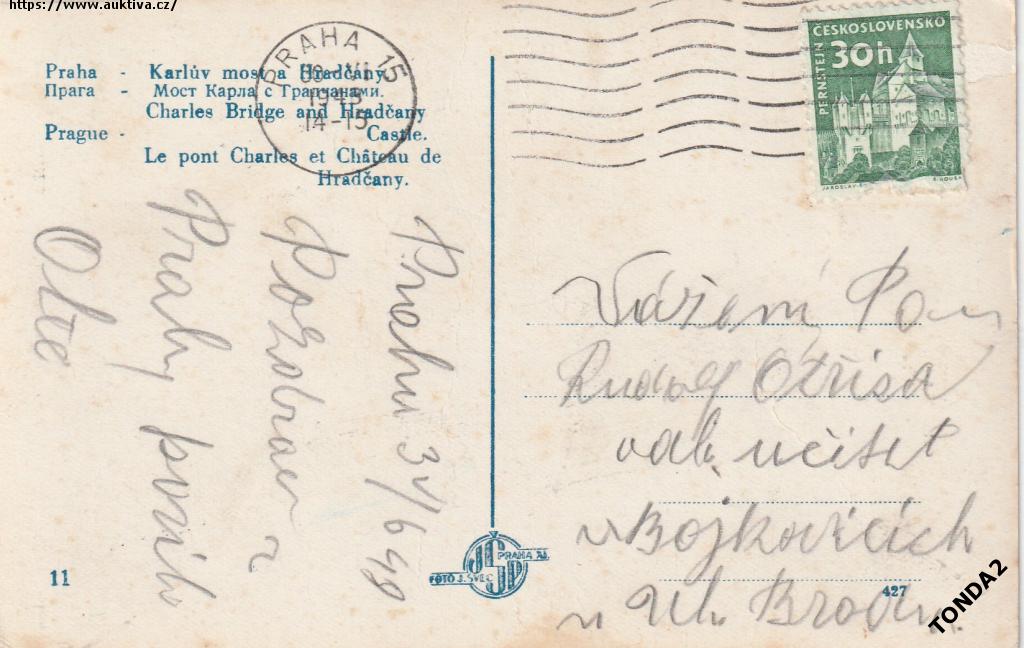 https://www.auktiva.cz/
Praha - Karlův most a Hradčany.
Прага - Мост Карла с Градчанами.
Charles Bridge and Hradčany
Prague - Castle.
Le pont Charles et Château de
Hradčany.
PRAHA 15
VI
14-15
ČESKOSLOVENSKO
30h
PERNŠTEJN
Pozdrav z
Prahy posílá
Ota
Vážený Pan
Rudolf Otřísa
odb. učitel
v Bojkovicích
u Uh. Brodu.
JSP
PRAHA XI.
FOTO J. ŠVEC
11
427
TONDA2